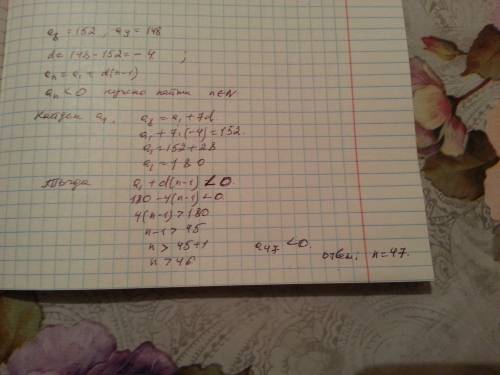 a₈ = 152, a₉ = 148
d = 148 - 152 = - 4 ;
aₙ = a₁ = d(n-1)
aₙ < 0 нужно найти n∈N.
Найдем a₁. a₈ = a₁ + 7d
a₁ + 7·(-4) = 152.
a₁ = 152 + 28
a₁ = 180
Тогда a₁ + d(n-1) < 0.
180 - 4(n-1) < 0.
4(n-1) > 180
n-1 > 45
n > 45+1
n > 46
a₄₇ < 0.
ответ: n = 47.